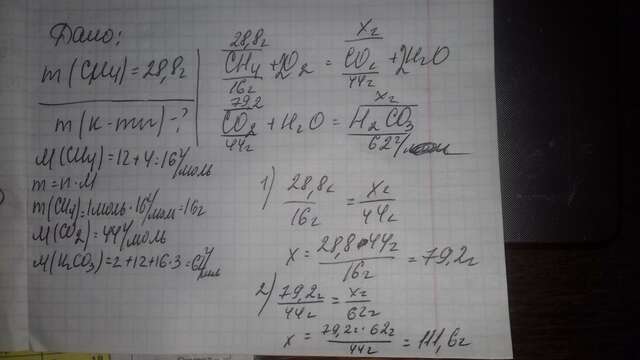 Дано:
m(CH4)=28,8г
m(к-ты)-?
M(CH4)=12+4=16г/моль
m=n·M
m(CH4)=1моль·16г/моль=16г
M(CO2)=44г/моль
M(H2CO3)=2+12+16·3=62г/моль
28,8г xг
CH4+2O2=CO2+2H2O
16г 44г
79,2 xг
CO2+H2O=H2CO3
44г 62г/
1) 28,8г/16г=xг/44г
x=28,8·44г/16г=79,2г
2) 79,2г/44г=xг/62г
x=79,2г·62г/44г=111,6г